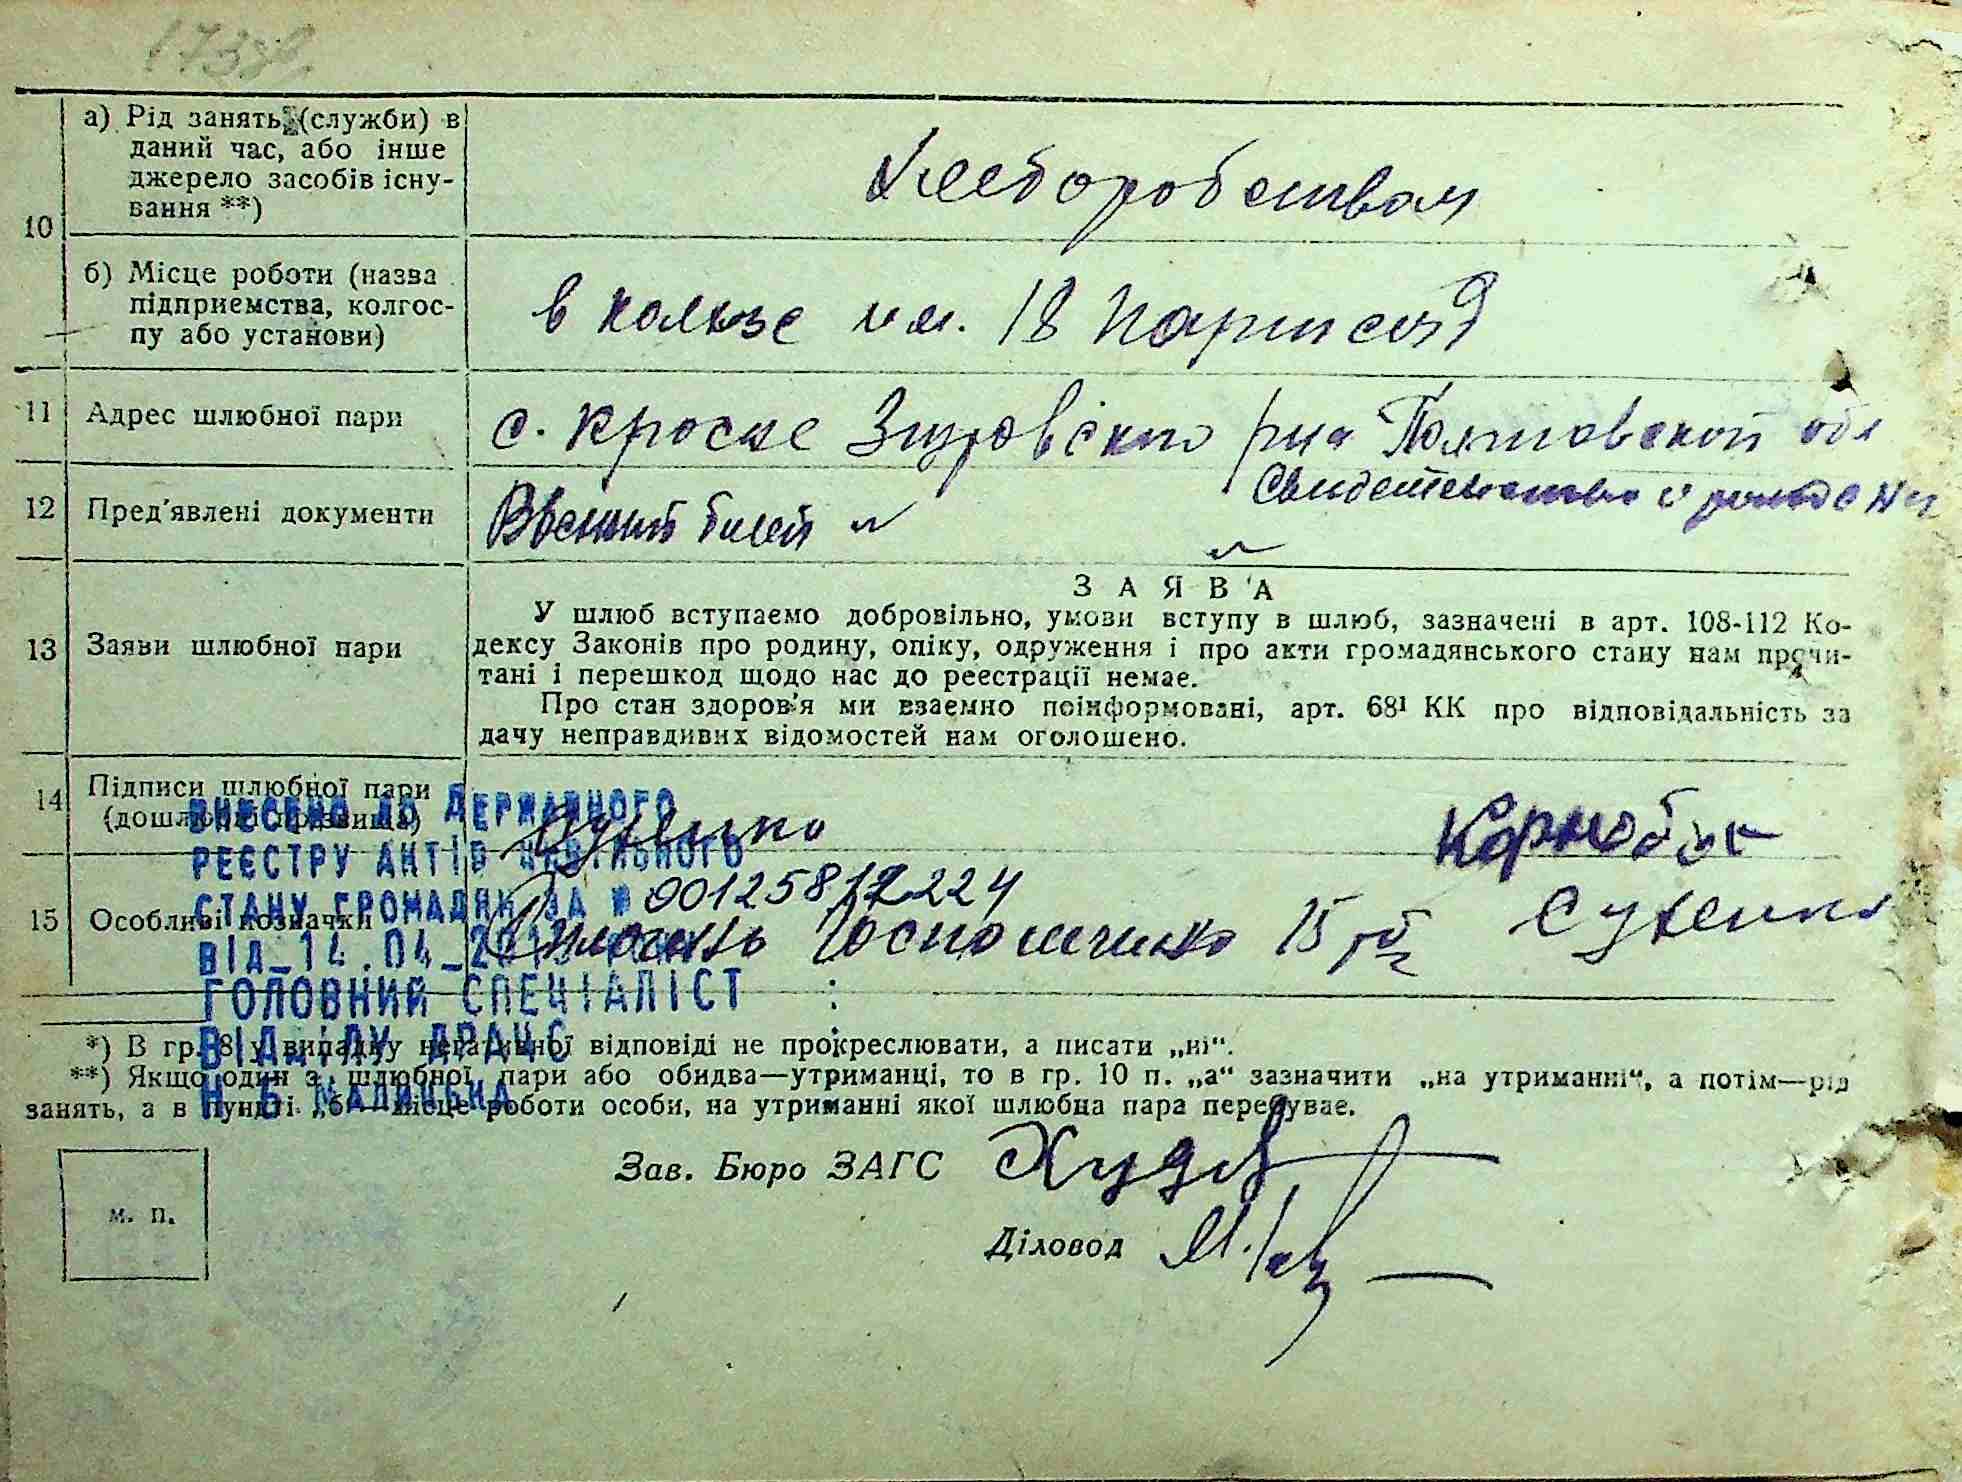 10
а) Рід занять (служби) в
даний час, або інше
джерело засобів існу-
вання **)
Хлеборобством
б) Місце роботи (назва
підприємства, колгос-
пу або установи)
в колхзе им. 18 Партсезд
11
Адрес шлюбної пари
с. Кроске рна Полтовской обл
12
Пред'явлені документи
Ввенний билет
Свидетельство о
13
Заяви шлюбної пари
ЗАЯВА
У шлюб вступаємо добровільно, умови вступу в шлюб, зазначені в арт. 108-112 Ко-
дексу Законів про родину, опіку, одруження і про акти громадянського стану нам прочи-
тані і перешкод щодо нас до реєстрації немає.
Про стан здоров'я ми взаємно поінформовані, арт. 68¹ КК про відповідальність за
дачу неправдивих відомостей нам оголошено.
14
Підписи шлюбної пари
(дошлюбні прізвища)
Сухенко
Корнобук
15
Особливі позначки
Сухенко
ВНЕСЕНО ДО ДЕРЖАВНОГО
РЕЄСТРУ АКТІВ ЦИВІЛЬНОГО
СТАНУ ГРОМАДЯН ЗА №
ВІД 14.04
ГОЛОВНИЙ СПЕЦІАЛІСТ
ВІДДІЛУ ДРАЦС
*) В гр. 8 у випадку негативної відповіді не прокреслювати, а писати „ні“.
**) Якщо один з шлюбної пари або обидва—утриманці, то в гр. 10 п. „а“ зазначити „на утриманні“, а потім—рід
занять, а в пункті „б“—місце роботи особи, на утриманні якої шлюбна пара перебуває.
Зав. Бюро ЗАГС
Діловод
м. п.